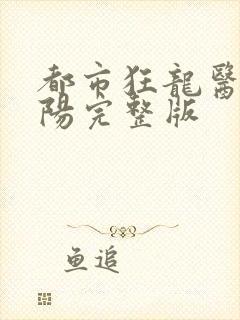 都市狂龍醫
陽完整版
鱼追